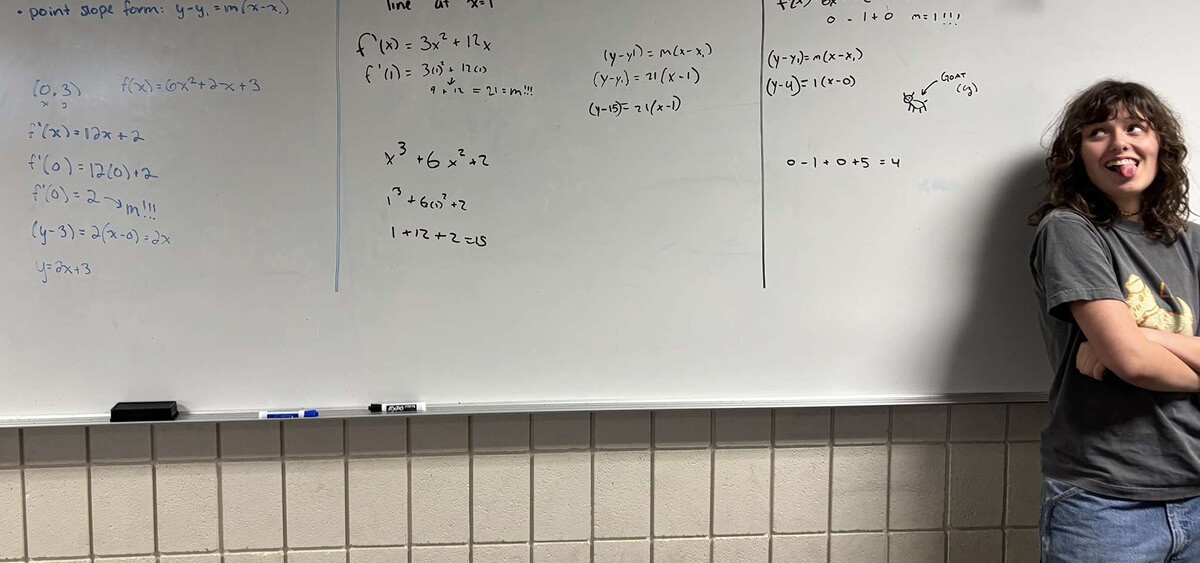 • point slope form: y-y₁ = m(x-x₁)
(0, 3) f(x) = 6x² + 2x + 3
x y
f'(x) = 12x + 2
f'(0) = 12(0) + 2
f'(0) = 2 → m!!!
(y-3) = 2(x-0) = 2x
y = 2x + 3
line at x=1
f'(x) = 3x² + 12x
f'(1) = 3(1)² + 12(1)
9 + 12 = 21 = m!!!
x³ + 6x² + 2
1³ + 6(1)² + 2
1 + 12 + 2 = 15
(y-y1) = m(x-x₁)
(y-y₁) = 21(x-1)
(y-15) = 21(x-1)
0 - 1 + 0 m = 1!!!
(y-y₁) = m(x-x₁)
(y-4) = 1(x-0)
GOAT
0 - 1 + 0 + 5 = 4
EXPO